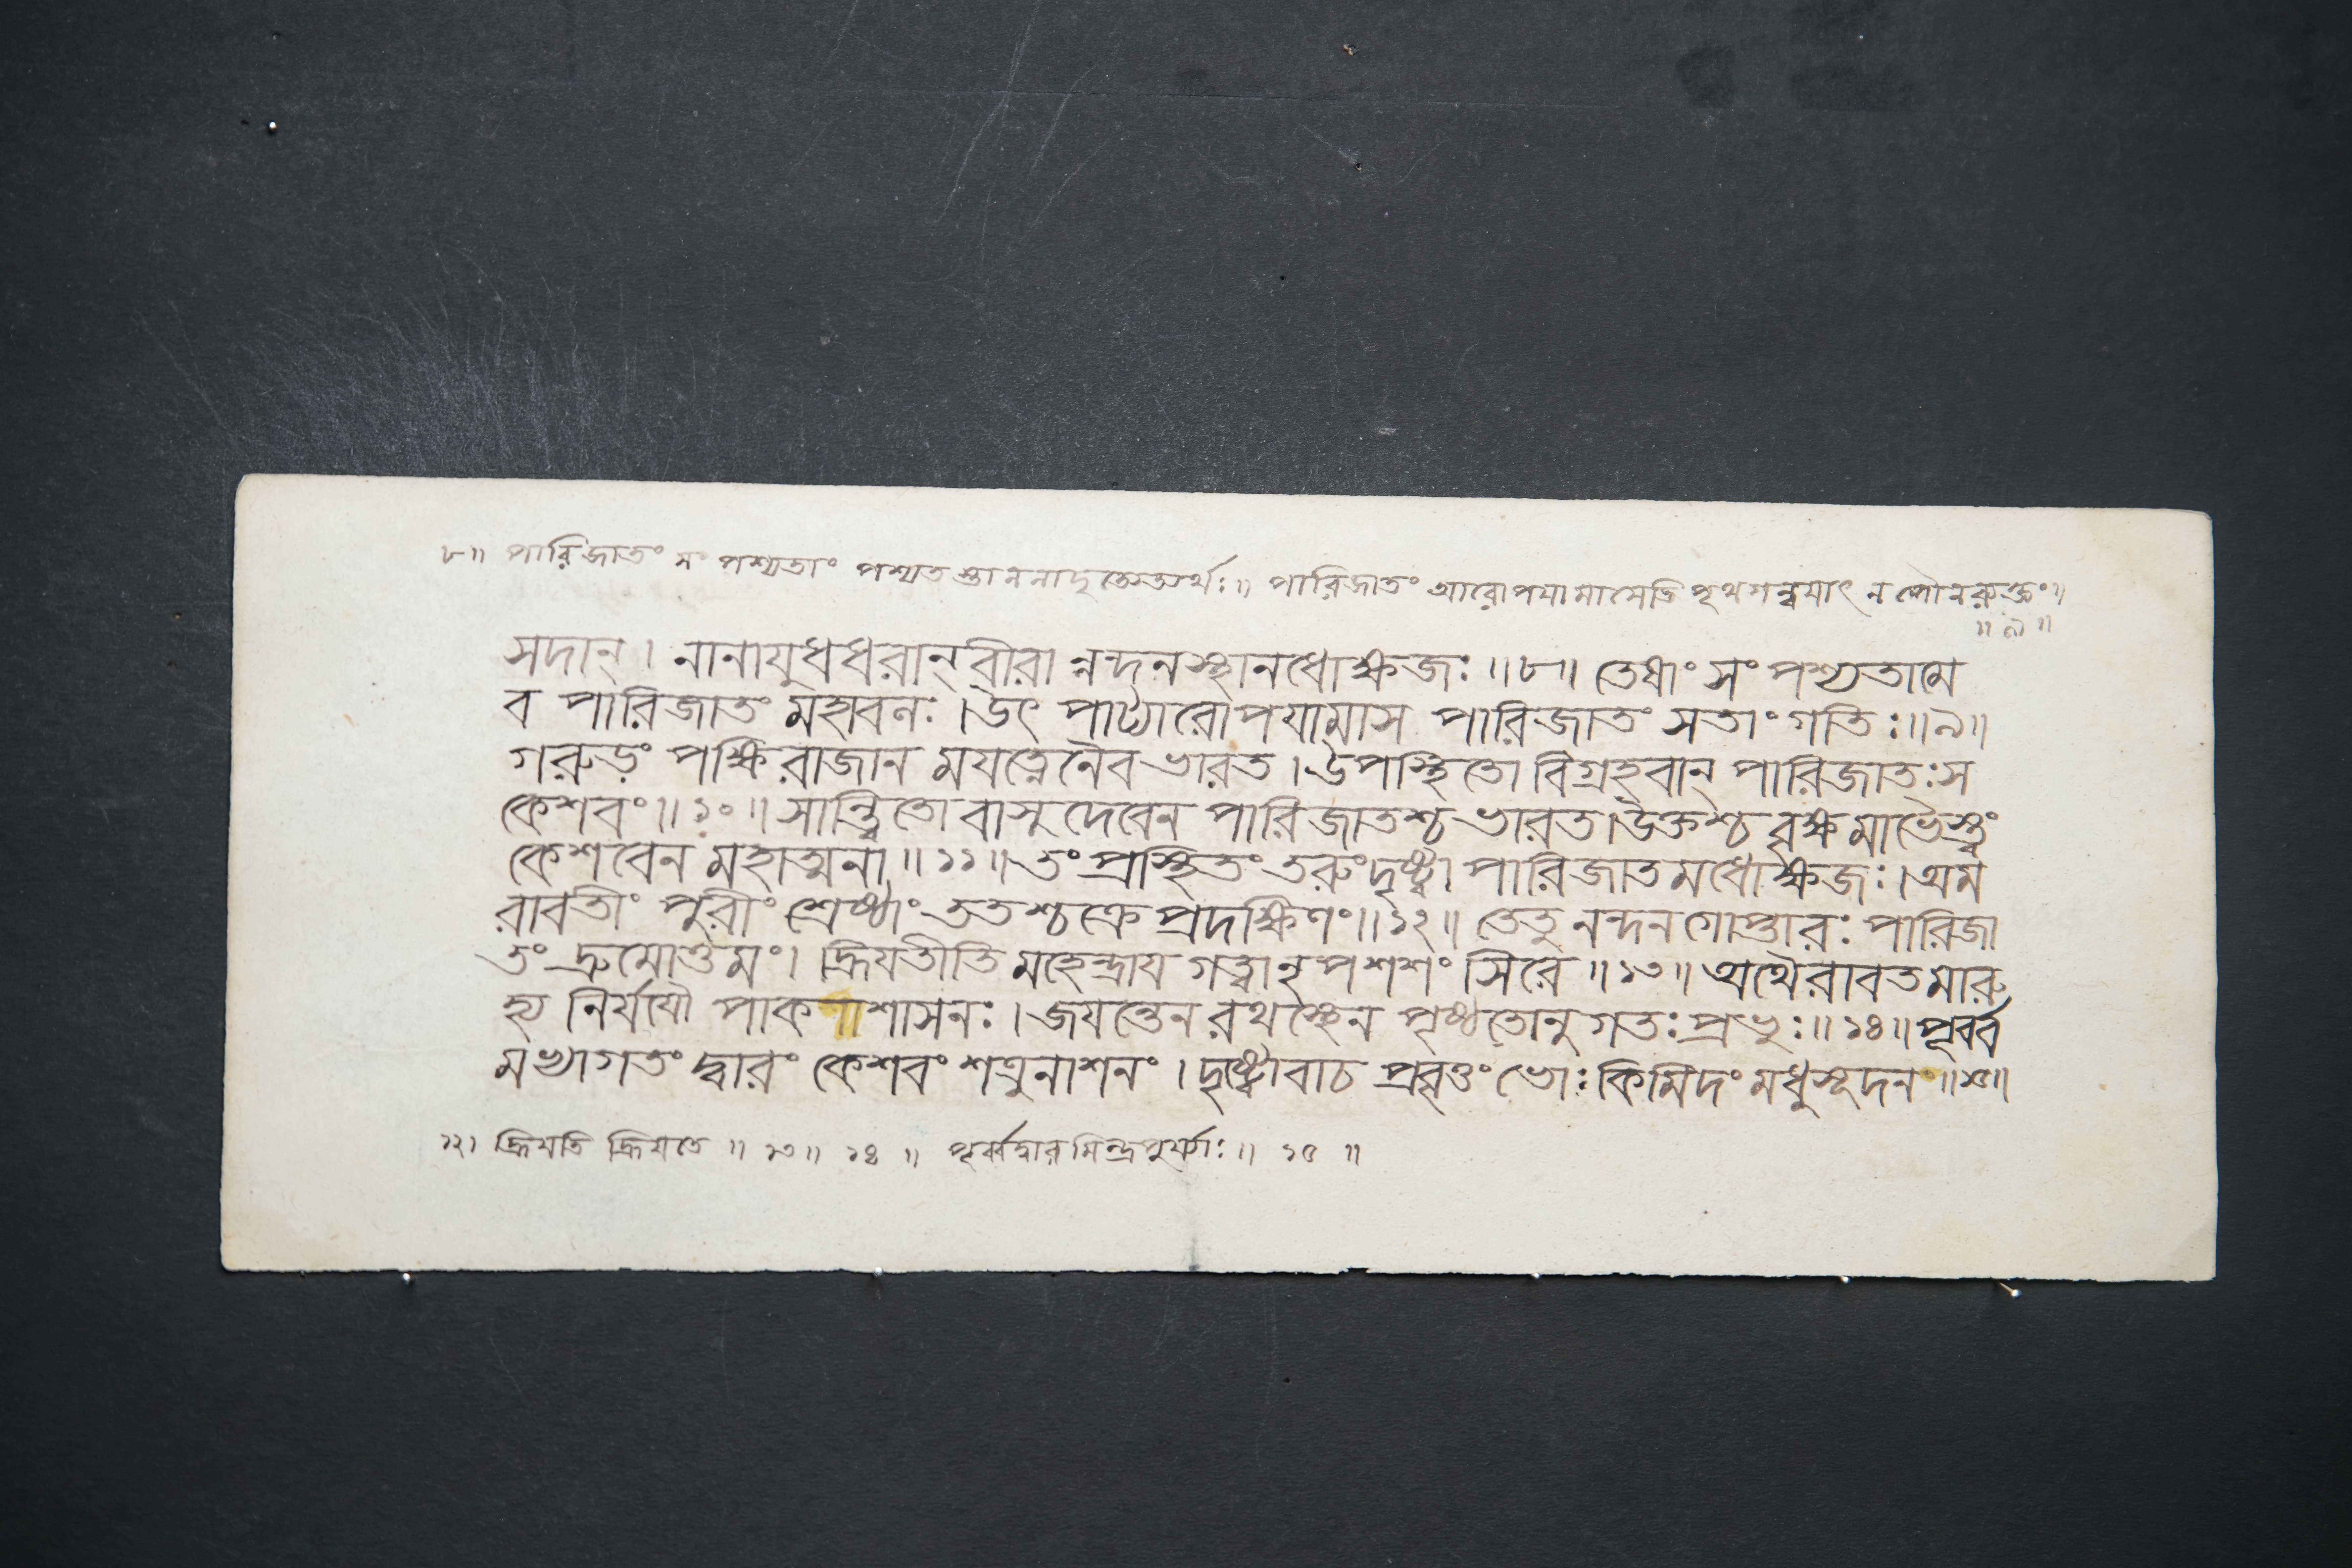 ৮॥ পারিজাতং সং পশ্যতাং পশ্যতস্তাননাদৃত্যেত্যর্থঃ॥ পারিজাতং আরোপযামাসেতি পৃথগন্বযাৎ ন পৌনরুক্ত্যং॥
॥ ৯ ॥
সদান্। নানাযুধধরান্ বীরা ন্নন্দনস্থানধোক্ষজঃ॥৮॥ তেষাং সং পশ্যতামে
ব পারিজাতং মহাবলঃ।উৎ পাট্যারোপযামাস পারিজাতং সতাং গতিঃ॥৯॥
গরুড়ং পক্ষিরাজান মযত্নেনৈব ভারত।উপস্থিতো বিগ্রহবান্ পারিজাতঃস
কেশবং॥১০॥ সান্ত্বিতো বাসুদেবেন পারিজাতশ্চ ভারত।উক্তশ্চ বৃক্ষ মাভৈস্ত্বং
কেশবেন মহাত্মনা॥১১॥ তং প্রস্থিতং তরুং দৃষ্ট্বা পারিজাতমধোক্ষজঃ।অম
রাবতীং পুরীং শ্রেষ্ঠাং ততশ্চক্রে প্রদক্ষিণং॥১২॥ তেতু নন্দনগোপ্তারঃ পারিজা
তং দ্রুমোত্তমং। হ্রিযতীতি মহেন্দ্রায গত্বা নৃপ শশংসিরে॥১৩॥ অথৈরাবতমারু
হ্য নির্যযৌ পাকশাসনঃ। জযন্তেন রথস্থেন পৃষ্ঠতোনুগতঃ প্রভুঃ॥১৪॥ পূর্ব্ব
মভ্যাগতং দ্বারং কেশবং শত্রুনাশনং। দৃষ্ট্বোবাচ প্রবৃত্তং ভোঃ কিমিদং মধুসূদন॥১৫॥
১২। হ্রিযতি হ্রিযতে॥ ১৩॥ ১৪॥ পূর্ব্বদ্বারমিন্দ্রপুর্য্যাঃ॥ ১৫॥